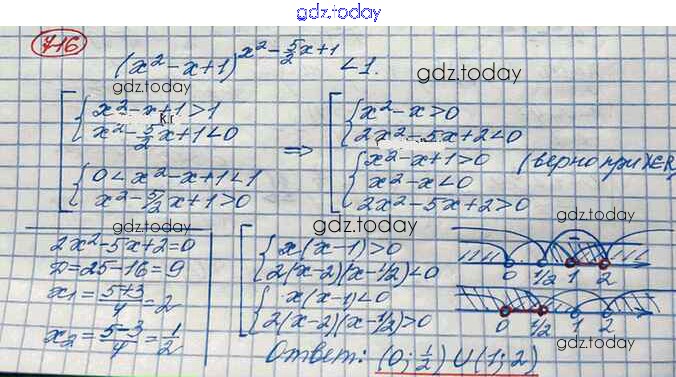 gdz.today
716
(x²-x+1)^(x²-5/2x+1) <1.
gdz.today
[ { x²-x+1>1
x²-5/2x+1<0
{ 0<x²-x+1<1
x²-5/2x+1>0
⇒
[ { x²-x>0
2x²-5x+2<0
{ x²-x+1>0 (верно при x∈R)
x²-x<0
2x²-5x+2>0
gdz.today
gdz.today
gdz.today
gdz.today
2x²-5x+2=0
D=25-16=9
x₁=5+3/4=2
x₂=5-3/4=1/2
[ { x(x-1)>0
2(x-2)(x-1/2)<0
{ x(x-1)<0
2(x-2)(x-1/2)>0
0 1/2 1 2
0 1/2 1 2
gdz.today
Ответ: (0; 1/2) U (1; 2)